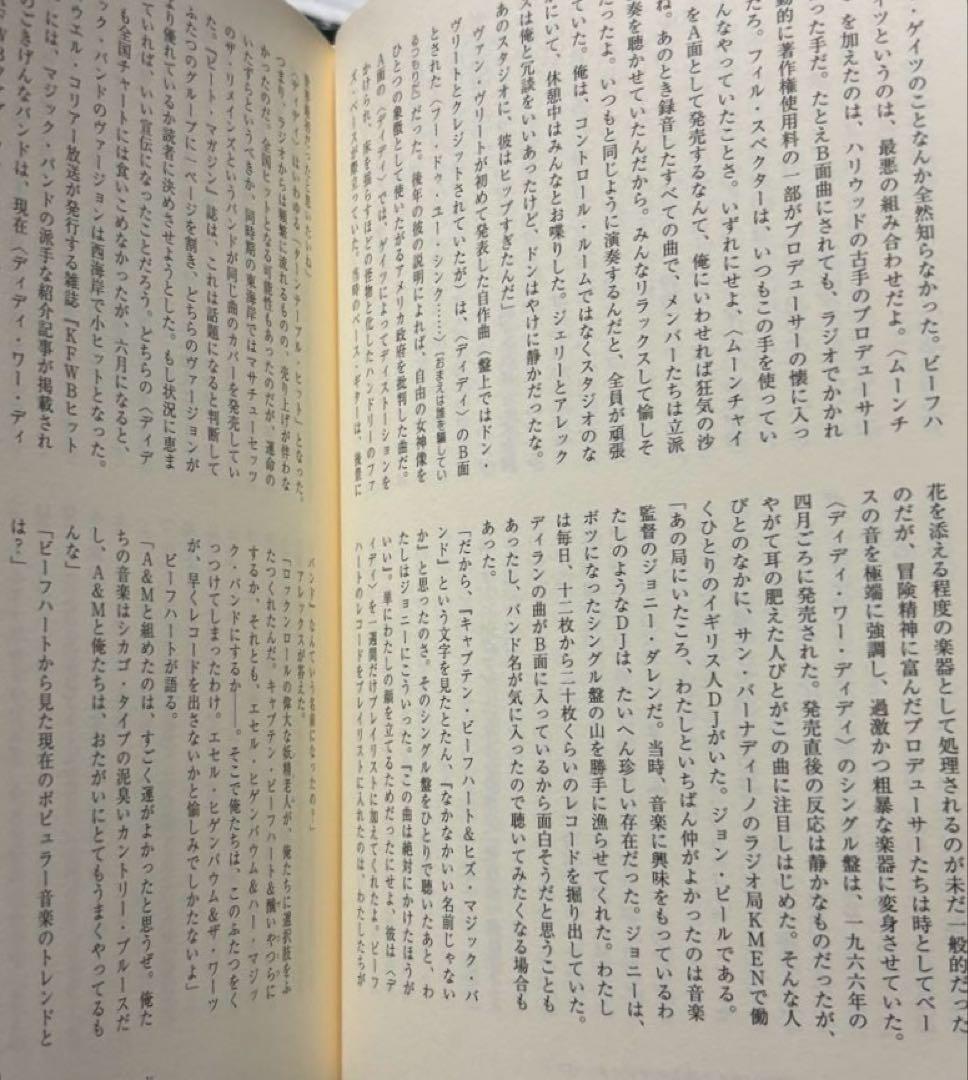 ・ゲイツのことなんか全然知らなかった。ビーフハ
イツというのは、最悪の組み合わせだよ。〈ムーンチ
を加えたのは、ハリウッドの古手のプロデューサー
った手だ。たとえB面曲にされても、ラジオでかかれ
動的に著作権使用料の一部がプロデューサーの懐に入っ
だろ。フィル・スペクターは、いつもこの手を使ってい
んなやっていたことさ。いずれにせよ、〈ムーンチャイ
をA面として発売するなんて、俺にいわせれば狂気の沙
ね。あのとき録音したすべての曲で、メンバーたちは立派
奏を聴かせていたんだから。みんなリラックスして愉しそ
だったよ。いつもと同じように演奏するんだと、全員が頑張
ていた。俺は、コントロール・ルームではなくスタジオのな
かにいて、休憩中はみんなとお喋りした。ジェリーとアレック
スは俺と冗談をいいあったけど、ドンはやけに静かだったな。
あのスタジオに、彼はヒップすぎたんだ」
ヴァン・ヴリートが初めて発表した自作曲（盤上ではドン・
ヴリートとクレジットされていたが）は、〈ディディ〉のB面
とされた〈フー・ドゥ・ユー・シンク……〉［おまえは誰を騙してい
るつもりだ］だった。後年の彼の説明によれば、自由の女神像を
ひとつの象徴として使いたがるアメリカ政府を批判した曲だ。
A面の〈ディディ〉では、ゲイツによってディストーションを
かけられ、床を揺らすほどの怪物と化したハンドリーのファ
ズ・ベースが際立っていた。当時のベース・ギターは、後景に
花を添える程度の楽器として処理されるのが未だ一般的だった
のだが、冒険精神に富んだプロデューサーたちは時としてベー
スの音を極端に強調し、過激かつ粗暴な楽器に変身させていた。
〈ディディ・ワー・ディディ〉のシングル盤は、一九六六年の
四月ごろに発売された。発売直後の反応は静かなものだったが、
やがて耳の肥えた人びとがこの曲に注目しはじめた。そんな人
びとのなかに、サン・バーナディーノのラジオ局KMENで働
くひとりのイギリス人DJがいた。ジョン・ピールである。
「あの局にいたころ、わたしといちばん仲がよかったのは音楽
監督のジョニー・ダレンだ。当時、音楽に興味をもっているわ
たしのようなDJは、たいへん珍しい存在だった。ジョニーは、
ボツになったシングル盤の山を勝手に漁らせてくれた。わたし
は毎日、十二枚から二十枚くらいのレコードを掘り出していた。
ディランの曲がB面に入っているから面白そうだと思うことも
あったし、バンド名が気に入ったので聴いてみたくなる場合も
あった。
「だから、『キャプテン・ビーフハート＆ヒズ・マジック・バ
ンド』という文字を見たとたん、『なかなかいい名前じゃない
か』と思ったのさ。そのシングル盤をひとりで聴いたあと、わ
たしはジョニーにこういった。『この曲は絶対にかけたほうが
いい』。単にわたしの顔を立てるためだったにせよ、彼は〈デ
ィディ〉を一週間だけプレイリストに加えてくれたよ。ビーフ
ハートのレコードをプレイリストに入れたのは、わたしたちが
〈ディディ〉はいわゆる「ターンテーブル・ヒット」となった。
つまり、ラジオからは頻繁に流れるものの、売り上げが伴わな
かったのだ。全国ヒットとなる可能性もあったのだが、運命の
いたずらというべきか、同時期の東海岸ではマサチューセッツ
のザ・リメインズというバンドが同じ曲のカバーを発売してい
た。『ビート・マガジン』誌は、これは話題になると判断して
ふたつのグループに一ページを割き、どちらのヴァージョンが
より優れているか読者に決めさせようとした。もし状況に恵ま
れていれば、いい宣伝になったことだろう。どちらの〈ディデ
も全国チャートには食いこめなかったが、六月になると、
ック・バンドのヴァージョンは西海岸で小ヒットとなった。
ウエル・コリアー放送が発行する雑誌『KFWBヒット
には、マジック・バンドの派手な紹介記事が掲載され
のごきげんなバンドは、現在〈ディディ・ワー・ディ
バンド』なんていう名前になったの？」
アレックスが答えた。
「ロックンロールの偉大な妖精老人が、俺たちに選択肢をふ
たつくれたんだ。キャプテン・ビーフハート＆醜いやつらに
するか、それとも、エセル・ヒゲンバウム＆ハー・マジッ
ク・バンドにするか――。そこで俺たちは、このふたつをく
っつけてしまったわけ。エセル・ヒゲンバウム＆ザ・ワーツ
が、早くレコードを出さないかと愉しみでしかたないよ」
ビーフハートが語る。
「A＆Mと組めたのは、すごく運がよかったと思うぜ。俺た
ちの音楽はシカゴ・タイプの泥臭いカントリー・ブルースだ
し、A＆Mと俺たちは、おたがいにとてもうまくやってるも
んな」
「ビーフハートから見た現在のポピュラー音楽のトレンドと
は？」